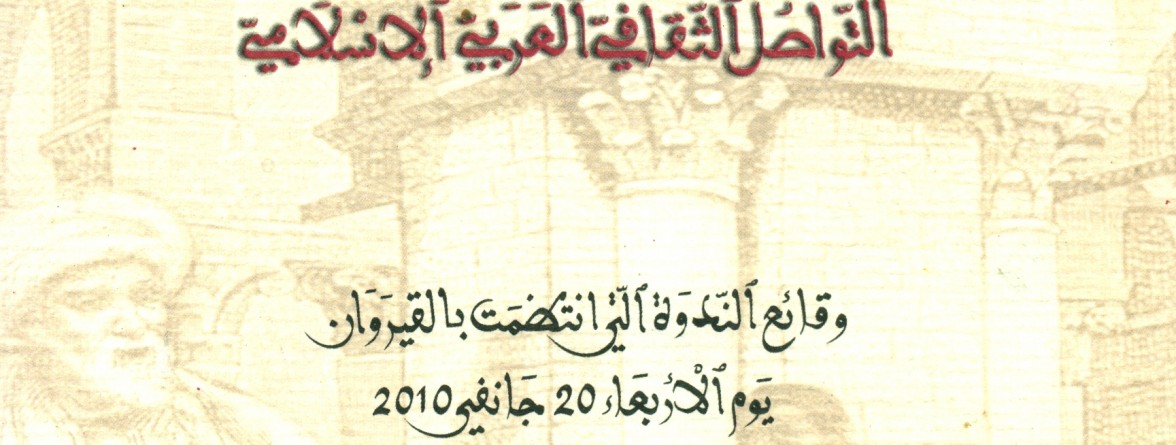 التّواصُل ٱلثّقافيّ ٱلعَرَبيّ ٱلإسْلاَميّ
وقائع ٱلنّدوَة ٱلّتي انتظمَت بالقيرَوَان
يَوم ٱلْأرْبعَاء 20 جَانفي 2010